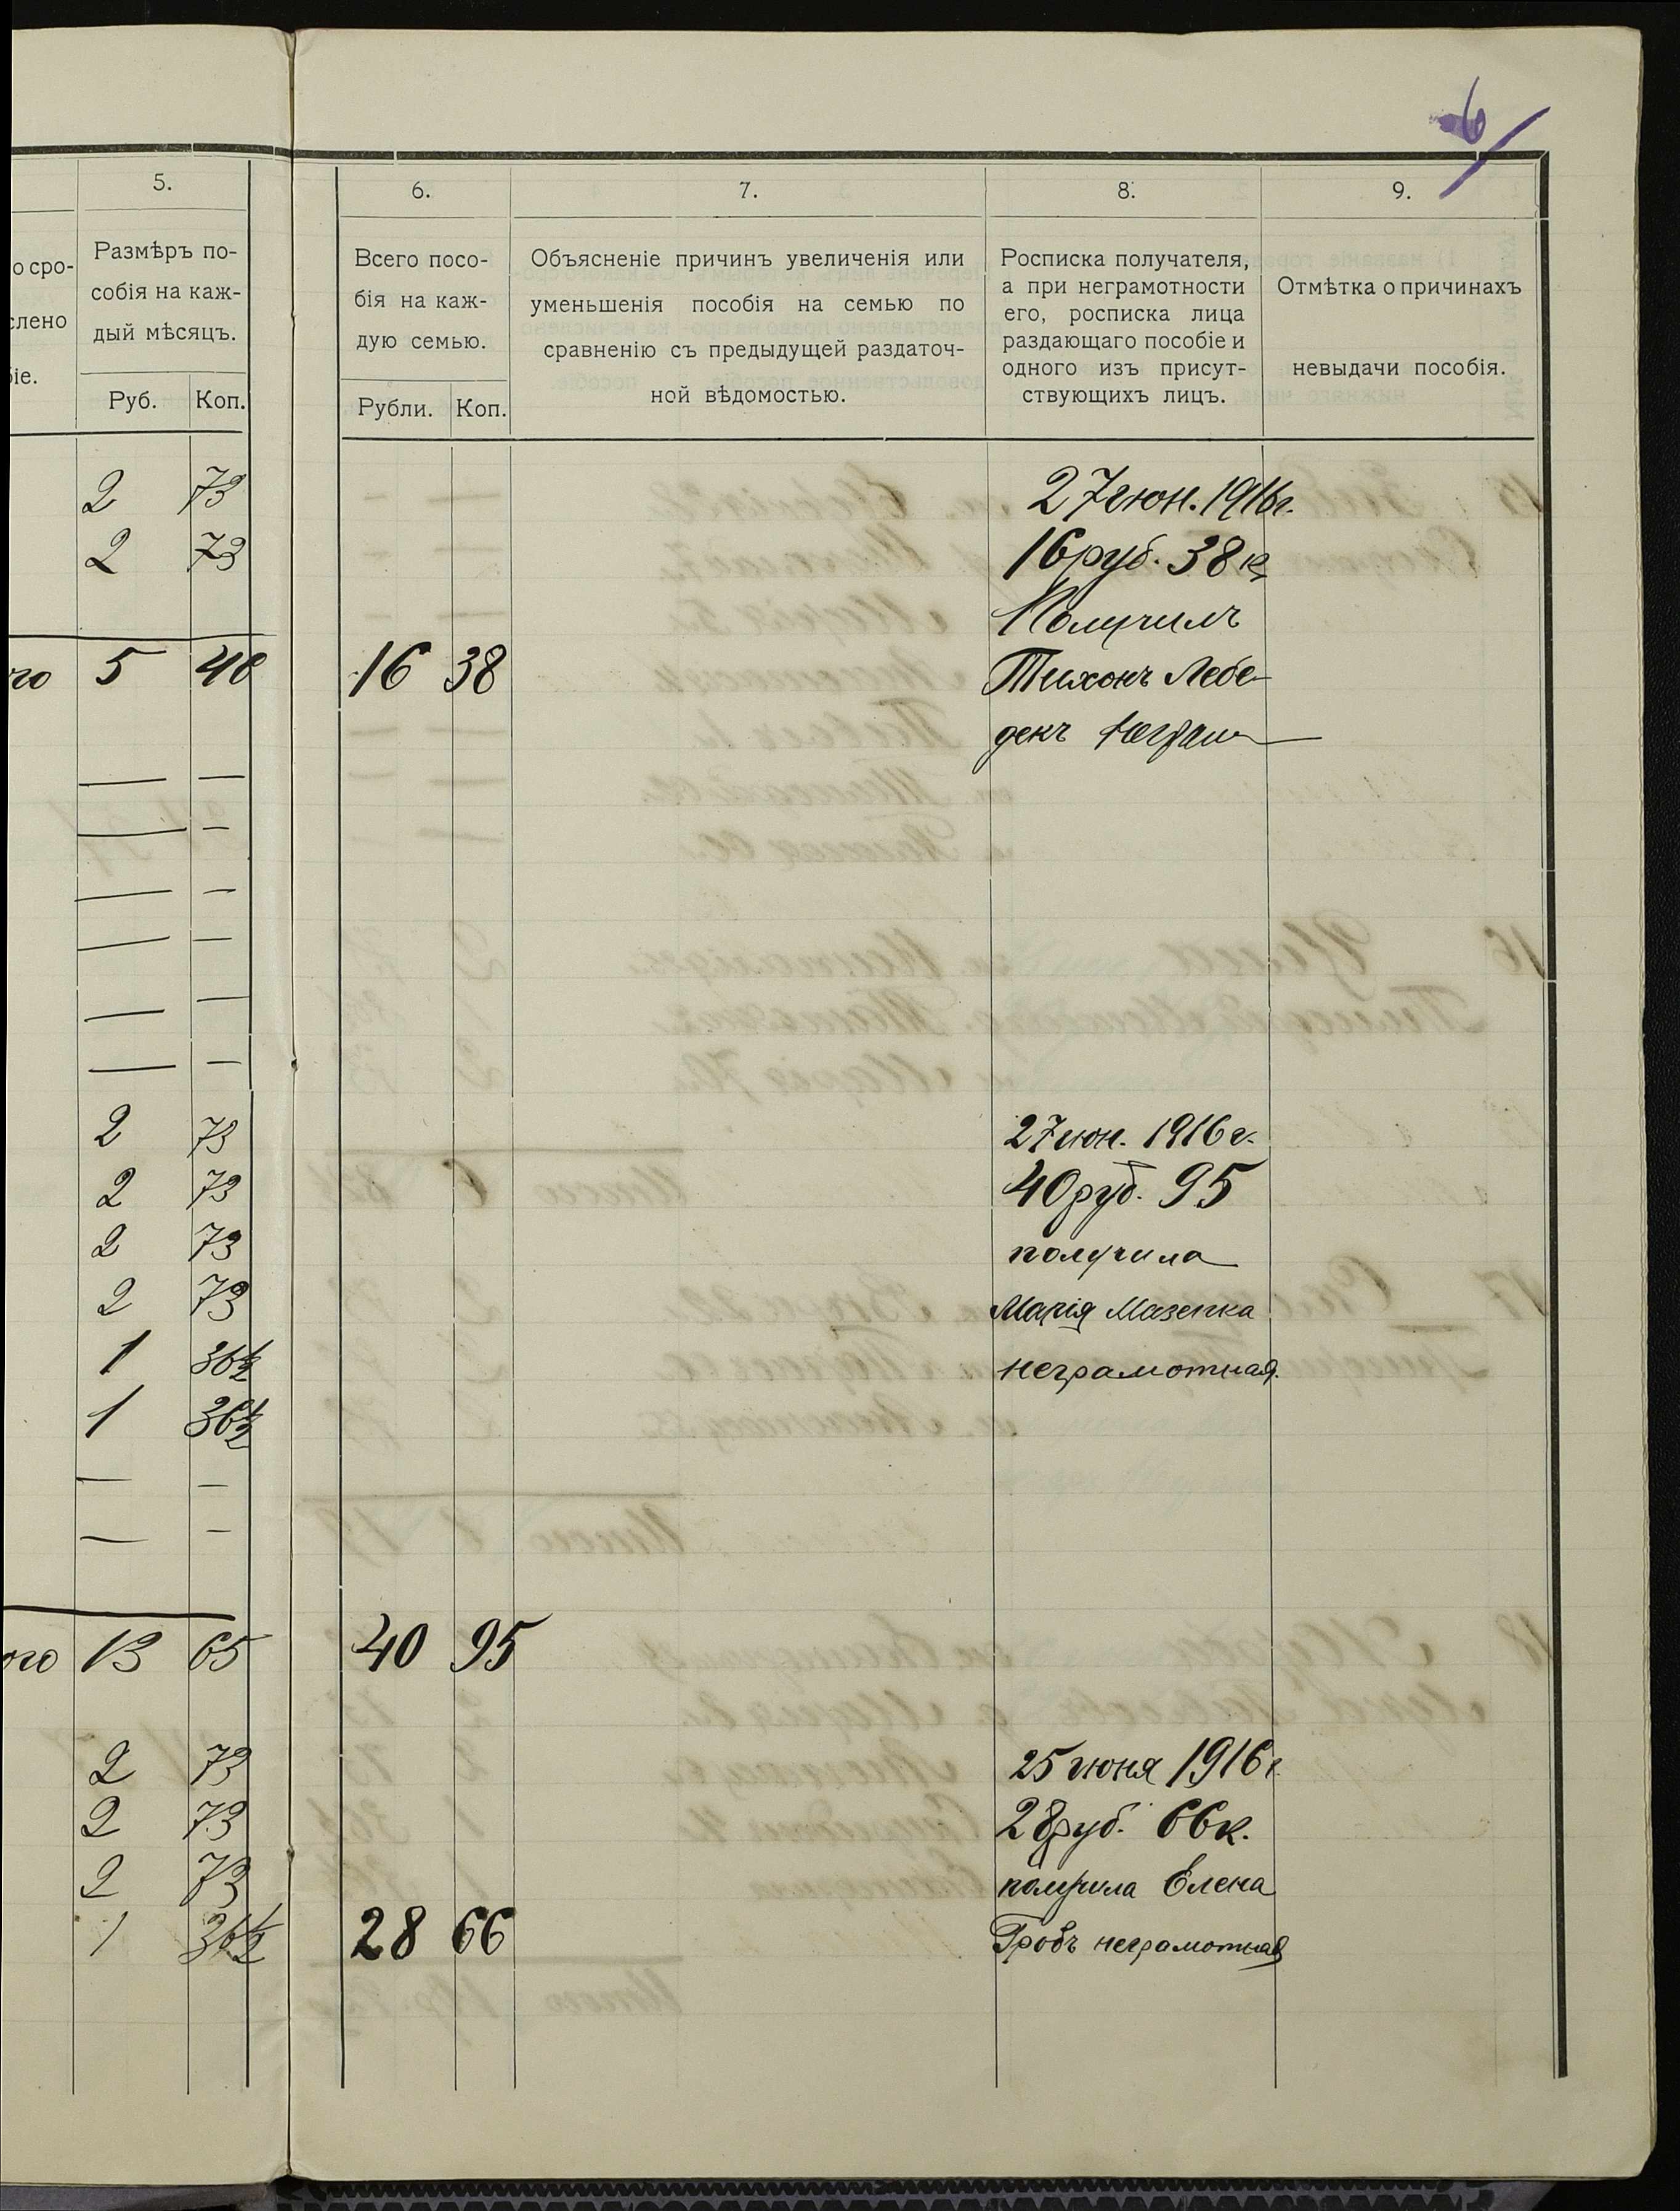 6
5.
о сро-
Размѣръ по-
собія на каж-
слено
дый мѣсяцъ.
біе.
Руб. Коп.
2 73
2 73
го 5 46
— —
— —
— —
— —
— —
— —
2 73
2 73
2 73
2 73
1 36½
1 36½
— —
— —
ого 13 65
2 73
2 73
2 73
1 36½
6.
Всего посо-
бія на каж-
дую семью.
Рубли. Коп.
16 38
40 95
28 66
7.
Объясненіе причинъ увеличенія или
уменьшенія пособія на семью по
сравненію съ предыдущей раздаточ-
ной вѣдомостью.
8.
Росписка получателя,
а при неграмотности
его, росписка лица
раздающаго пособіе и
одного изъ присут-
ствующихъ лицъ.
27 июн. 1916 г.
16 руб. 38 к.
Получилъ
Тихонъ Лебе-
27 июн. 1916 г.
40 руб. 95
получила
Марія Мазепка
неграмотная.
25 июня 1916 г.
28 руб. 66 к.
получила Елена
Гробъ неграмотная
9.
Отмѣтка о причинахъ
невыдачи пособія.